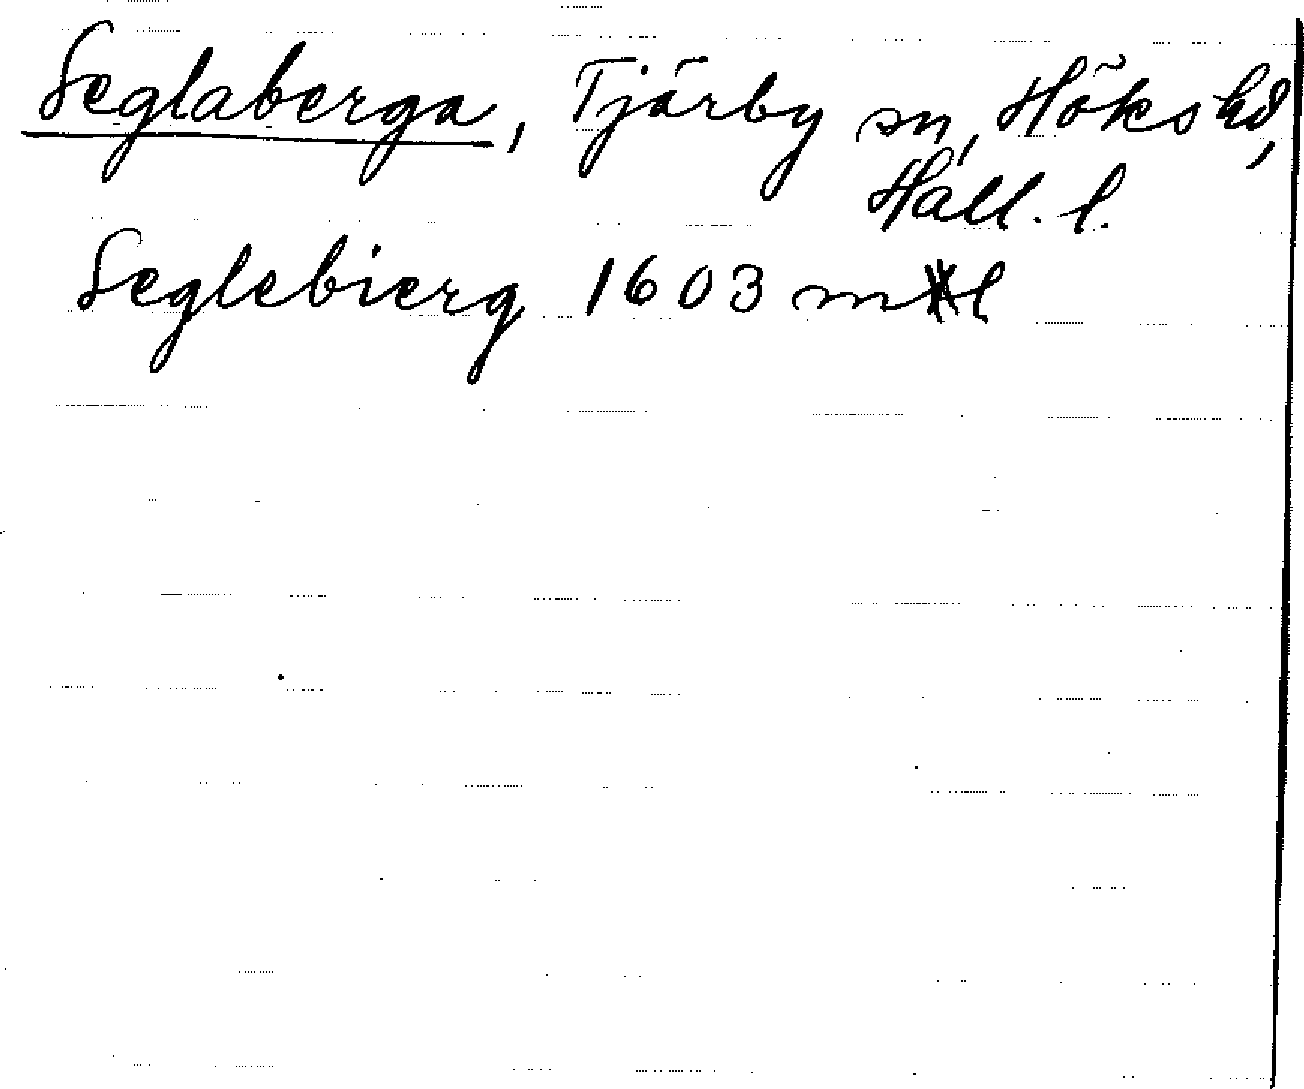 Seglaberga, Tjärby sn, Höks hd,
Hall. l.
Seglebierg 1603 ml